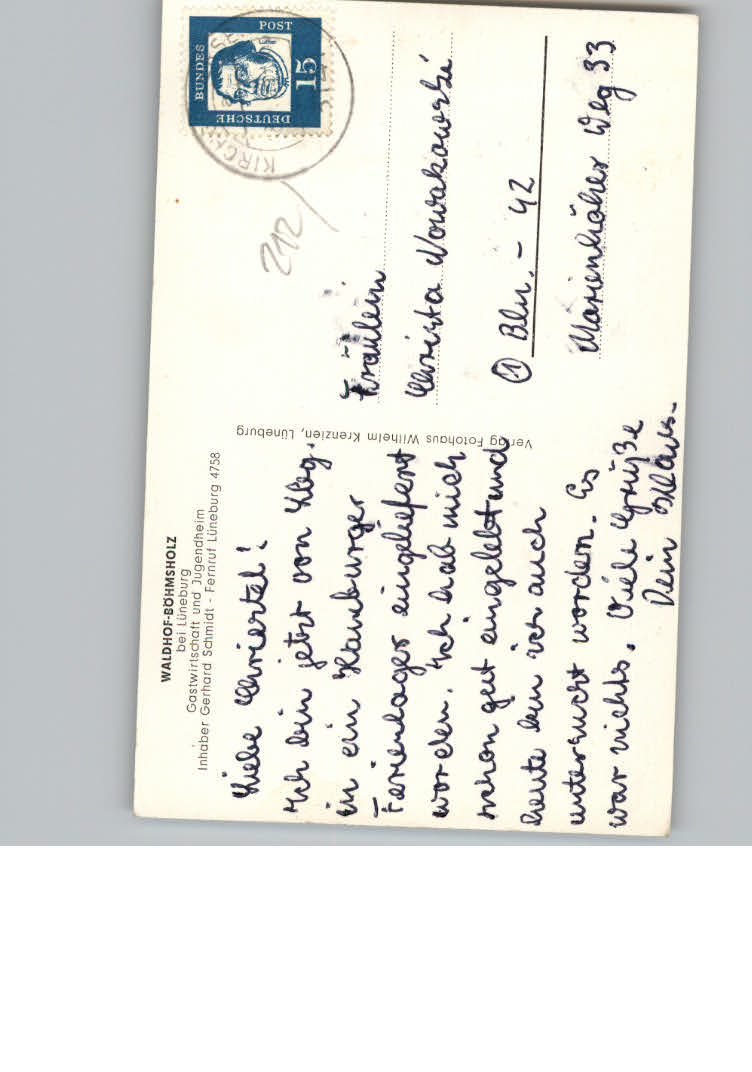 WALDHOF-BÖHMSHOLZ
bei Lüneburg
Gastwirtschaft und Jugendheim
Inhaber Gerhard Schmidt - Fernruf Lüneburg 4758
Liebe Christel!
Ich bin jetzt von Weg.
in ein Hamburger
Ferienlager eingeliefert
worden. Ich hab mich
schon gut eingelebt und
heute bin ich auch
untersucht worden. Es
war nichts. Viele Grüße
Dein Klaus.
Verlag Fotohaus Wilhelm Krenzien, Lüneburg
DEUTSCHE
BUNDES
POST
15
Luther
KIRCH
212
Fräulein
Christa Nowakowski
① Bln. - 42
Marienhöher Weg 33